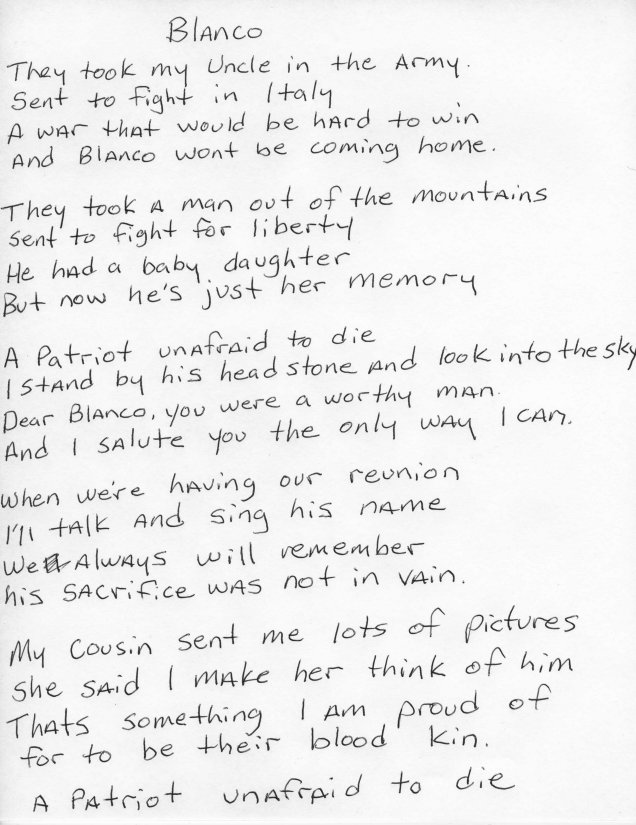 Blanco
They took my Uncle in the Army.
Sent to fight in Italy
A war that would be hard to win
And Blanco wont be coming home.
They took a man out of the mountains
Sent to fight for liberty
He had a baby daughter
But now he's just her memory
A Patriot unafraid to die
I stand by his head stone and look into the sky
Dear Blanco, you were a worthy man.
And I salute you the only way I can.
When we're having our reunion
I'll talk and sing his name
We Always will remember
his sacrifice was not in vain.
My Cousin sent me lots of pictures
She said I make her think of him
Thats something I am proud of
for to be their blood kin.
A Patriot unafraid to die